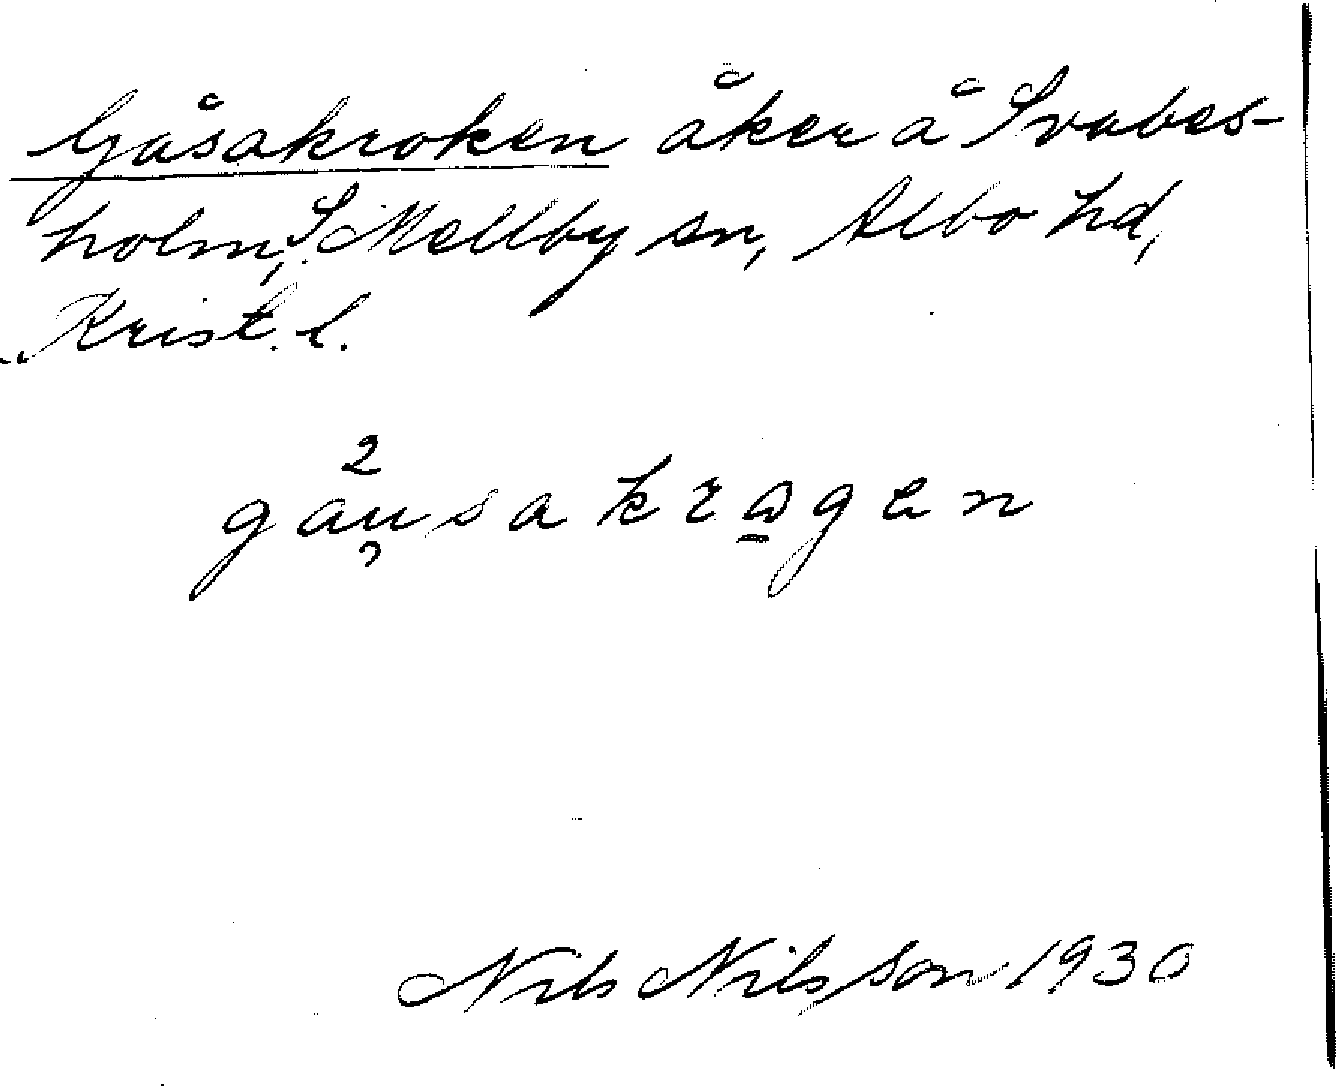 Gåsakroken åker å Svabes-
holm, S. Mellby sn, Albo hd,
Krist. l.
2
gausakrɷgen
Nils Nilsson 1930